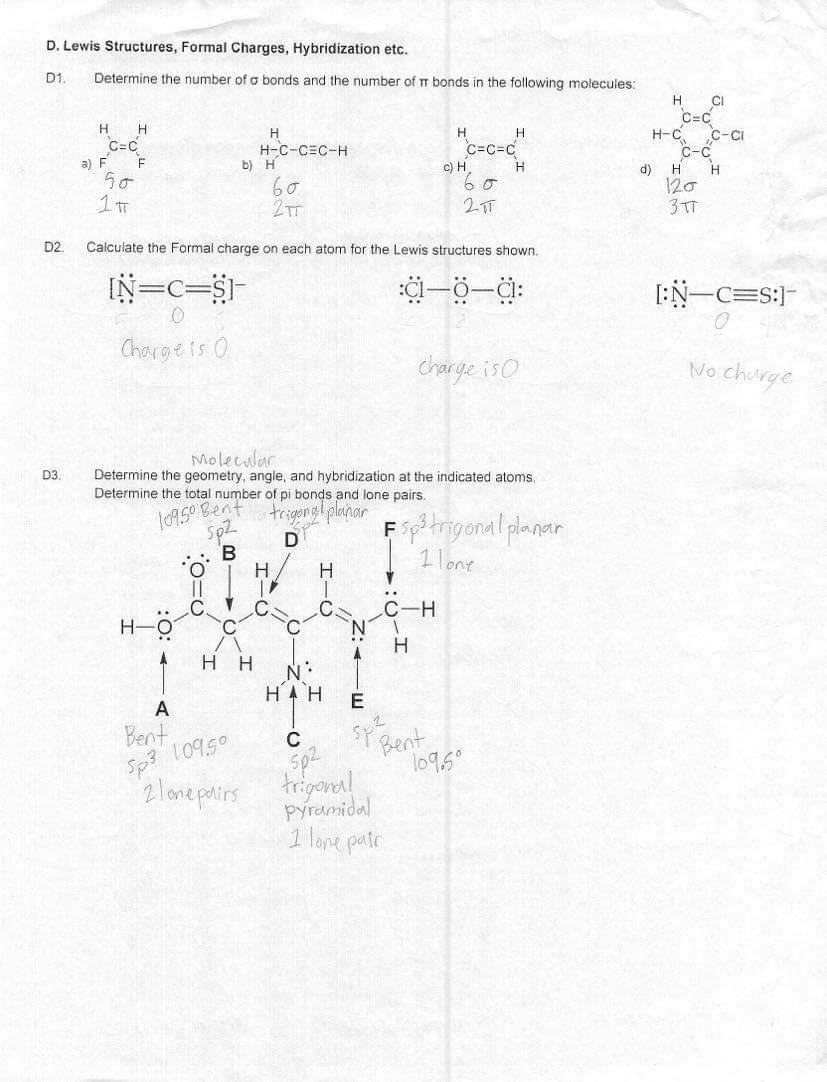 D. Lewis Structures, Formal Charges, Hybridization etc.
D1. Determine the number of σ bonds and the number of π bonds in the following molecules:
H H
C=C
a) F F
5σ
1π
H
H-C-C≡C-H
b) H
6σ
2π
H H
C=C=C
c) H H
6σ
2π
H Cl
C=C
H-C C-Cl
C-C
d) H H
12σ
3π
D2. Calculate the Formal charge on each atom for the Lewis structures shown.
[N=C=S]⁻
0
Charge is 0
:Cl—O—Cl:
charge is 0
[:N—C≡S:]⁻
0
No charge
Molecular
D3. Determine the geometry, angle, and hybridization at the indicated atoms.
Determine the total number of pi bonds and lone pairs.
109.5° Bent
sp2
B
trigonal planar
sp2
D
F sp3 trigonal planar
1 lone
O H H
C C C C—H
H—O C C N H
H H N:
H H
A
Bent
sp3 109.5°
2 lone pairs
C
sp2
trigonal
pyramidal
1 lone pair
E
sp2
Bent
109.5°